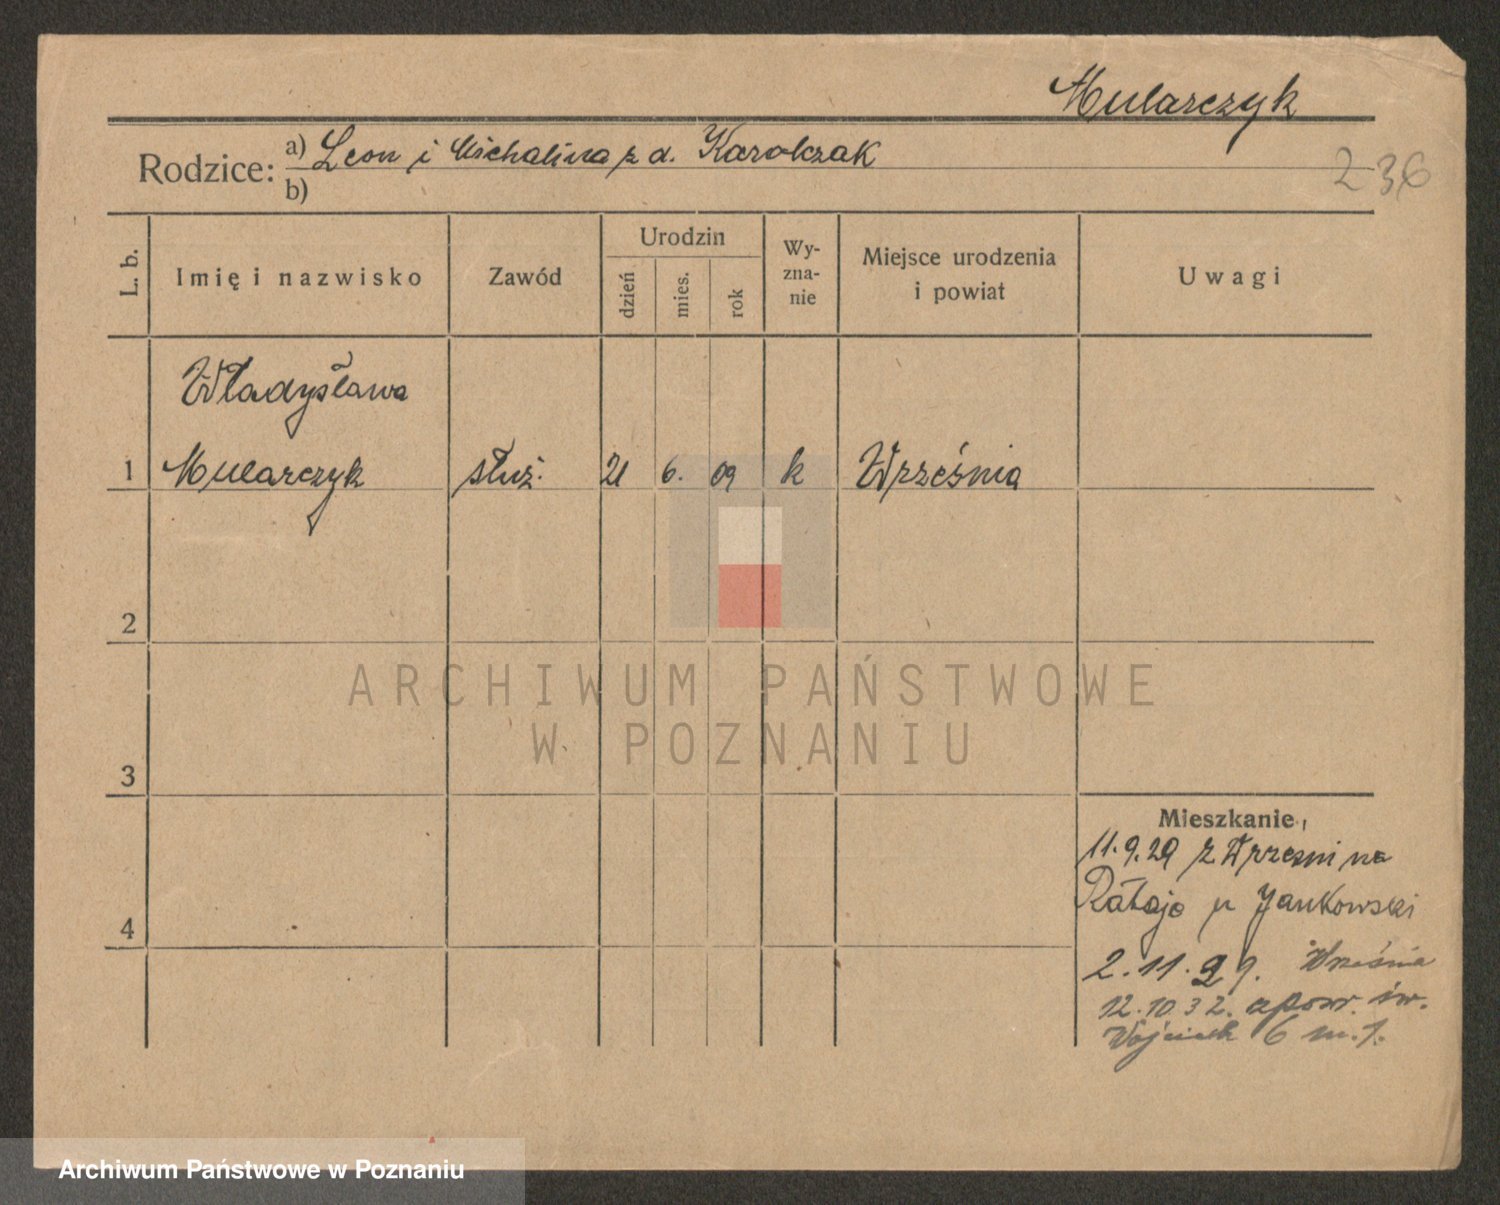 Mularczyk
Rodzice: a) Leon i Michalina z d. Karolczak
b)
236
L. b.
Imię i nazwisko
Zawód
Urodzin
dzień
mies.
rok
Wy-
zna-
nie
Miejsce urodzenia
i powiat
Uwagi
Władysława
1 Mularczyk służ. 21 6. 09 k Września
2
ARCHIWUM PAŃSTWOWE
W POZNANIU
3
Mieszkanie
11.9.29 z Wrześni na
Rataje Jankowski
4
2.11.29. Września
12.10.32. św.
Wojciech 6 m. 1.
Archiwum Państwowe w Poznaniu